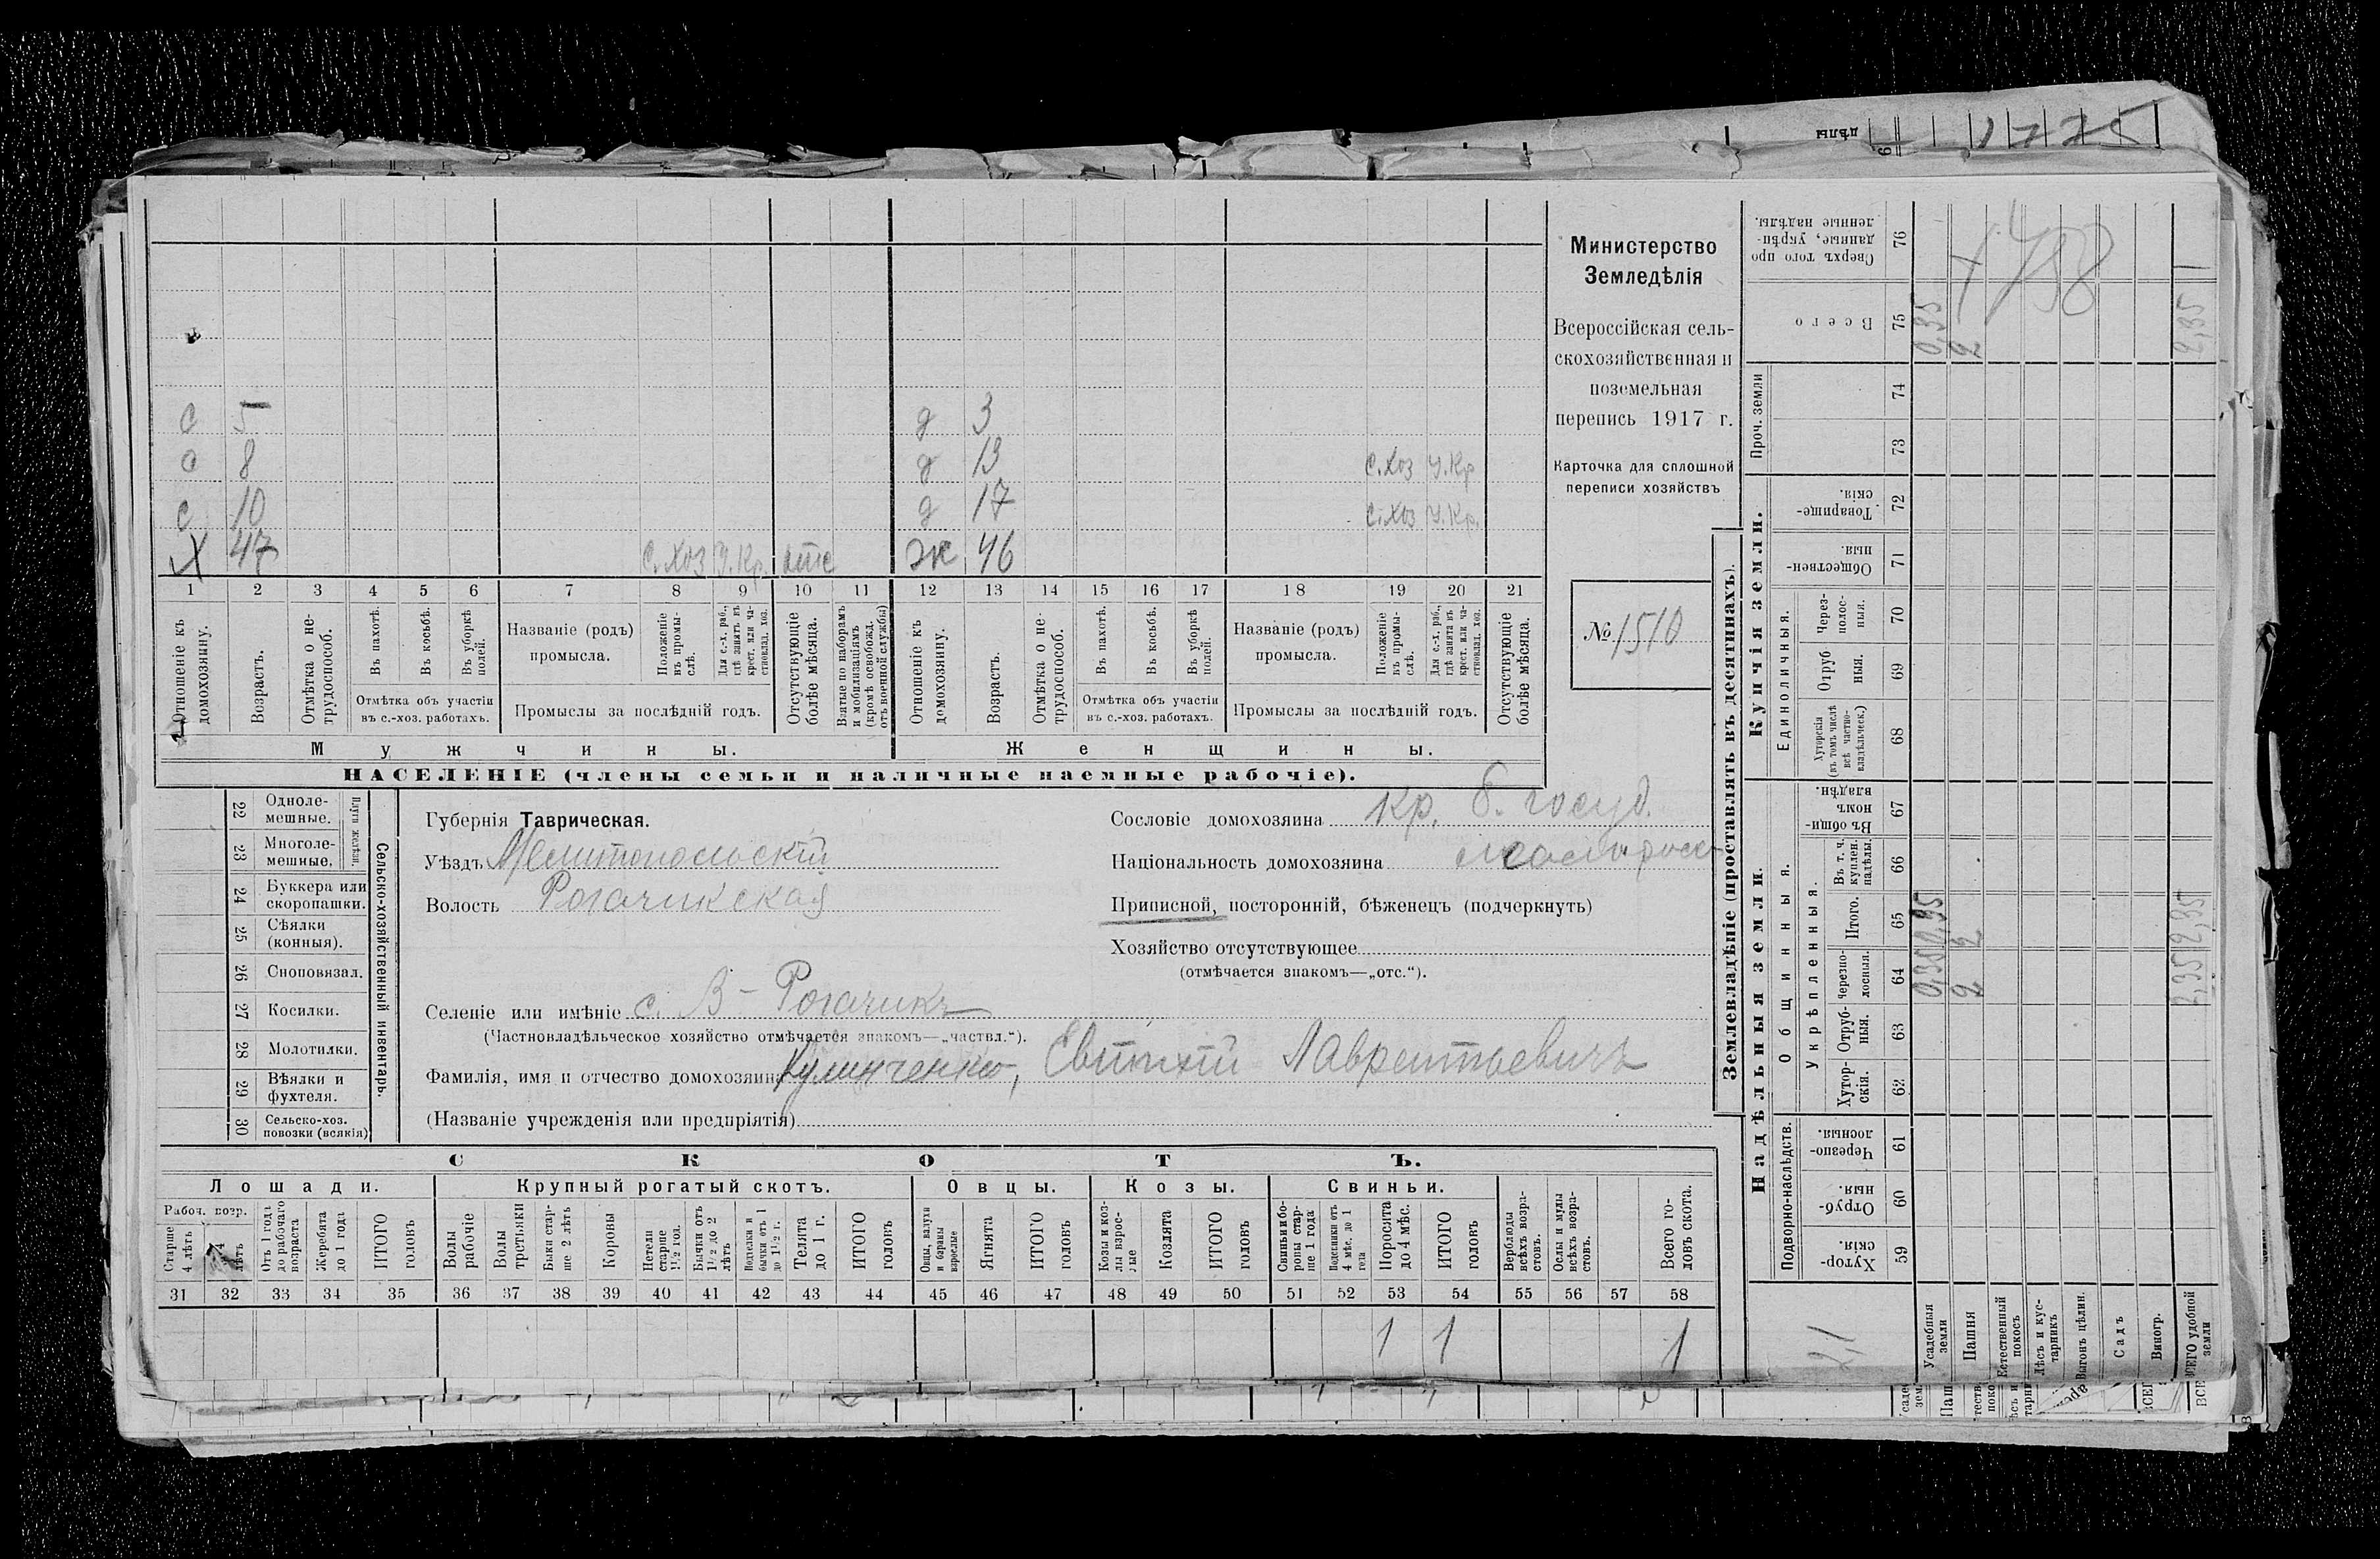 с 5 д 3
с 8 д 13 с.хоз У.Кр
с 10 д 17 с.хоз У.Кр.
Х 47 с.хоз У.Кр. отс ж 46
1 2 3 4 5 6 7 8 9 10 11 12 13 14 15 16 17 18 19 20 21
Отношеніе къ домохозяину.
Возрастъ.
Отмѣтка о не-трудоспособ.
Въ пахотѣ.
Въ косьбѣ.
Въ уборкѣ полей.
Отмѣтка объ участіи
въ с.-хоз. работахъ.
Названіе (родъ)
промысла.
Положеніе въ промы-слѣ.
Для с.-х. раб., гдѣ занятъ въ крест. или ча-стновлад. хоз.
Промыслы за послѣдній годъ.
Отсутствующіе болѣе мѣсяца.
Взятые по наборамъ и мобилизаціямъ (кромѣ освобожд. отъ военной службы)
Отношеніе къ домохозяину.
Возрастъ.
Отмѣтка о не-трудоспособ.
Въ пахотѣ.
Въ косьбѣ.
Въ уборкѣ полей.
Отмѣтка объ участіи
въ с.-хоз. работахъ.
Названіе (родъ)
промысла.
Положеніе въ промы-слѣ.
Для с.-х. раб., гдѣ занята въ крест. или ча-стновлад. хоз.
Промыслы за послѣдній годъ.
Отсутствующіе болѣе мѣсяца.
Мужчины. Женщины.
НАСЕЛЕНІЕ (члены семьи и наличные наемные рабочіе).
Министерство
Земледѣлія
Всероссійская сель-
скохозяйственная и
поземельная
перепись 1917 г.
Карточка для сплошной
переписи хозяйствъ
№ 1510
Сельско-хозяйственный инвентарь.
Плуги желѣзн.
22 Одноле-мешные.
23 Многоле-мешные.
24 Буккера или скоропашки.
25 Сѣялки (конныя).
26 Сноповязал.
27 Косилки.
28 Молотилки.
29 Вѣялки и фухтеля.
30 Сельско-хоз. повозки (всякія)
Губернія Таврическая.
Уѣздъ Мелитопольскій
Волость Рогачикская
Селеніе или имѣніе с. В-Рогачикъ
(Частновладѣльческое хозяйство отмѣчается знакомъ—„частвл.“).
Фамилія, имя и отчество домохозяина Кулинченко, Евтихій Лаврентьевичъ
(Названіе учрежденія или предпріятія)
Сословіе домохозяина кр. б. госуд.
Національность домохозяина малоросс
Приписной, посторонній, бѣженецъ (подчеркнуть)
Хозяйство отсутствующее
(отмѣчается знакомъ—„отс.“).
СКОТЪ.
Лошади. Крупный рогатый скотъ. Овцы. Козы. Свиньи.
Рабоч. возр.
Старше 4 лѣтъ
4 лѣтъ
Отъ 1 года до рабочаго возраста
Жеребята до 1 года
ИТОГО головъ
Волы рабочіе
Волы третьяки
Быки стар-ше 2 лѣтъ
Коровы
Нетели старше 1½ год.
Бычки отъ 1½ до 2 лѣтъ
Подтелки и бычки отъ 1 до 1½ г.
Телята до 1 г.
ИТОГО головъ
Овцы, валухи и бараны взрослые
Ягнята
ИТОГО головъ
Козы и коз-лы взрос-лые
Козлята
ИТОГО головъ
Свиньи и бо-ровы стар-ше 1 года
Подсвинки отъ 4 мѣс. до 1 года
Поросята до 4 мѣс.
ИТОГО головъ
Верблюды всѣхъ возра-стовъ.
Ослы и мулы всѣхъ возра-стовъ.
Всего го-ловъ скота.
31 32 33 34 35 36 37 38 39 40 41 42 43 44 45 46 47 48 49 50 51 52 53 54 55 56 57 58
1 1 1
Землевладѣніе (проставлять въ десятинахъ).
Надѣльныя земли. Купчія земли. Проч. земли
Подворно-наслѣдств.
Общинныя.
Укрѣпленныя.
Единоличныя.
59 Хутор-скія.
60 Отруб-ныя.
61 Черезпо-лосныя.
62 Хутор-скія.
63 Отруб-ныя.
64 Черезпо-лосныя.
65 Итого.
66 Въ т. ч. куплен. надѣлы.
67 Въ общи-номъ владѣн.
68 Хуторскія (въ томъ числѣ всѣ частно-владѣльческ.)
69 Отруб ныя.
70 Через-полос-ныя.
71 Обществен-ныя.
72 Товарище-скія.
73
74
75 Всего
76 Сверхъ того про-данные, укрѣп-ленные надѣлы.
Усадебныя земли 0,35 0,35 0,35
Пашня 2 2 2
Естественный покосъ
Лѣсъ и кус-тарникъ
Выгонъ цѣлин.
Садъ
Виногр.
ВСЕГО удобной земли 2,35 2,35 2,35